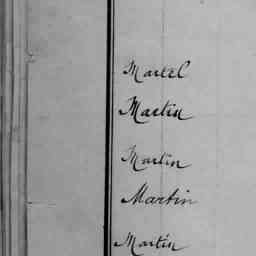 Martel
Martin
Martin
Martin
Martin